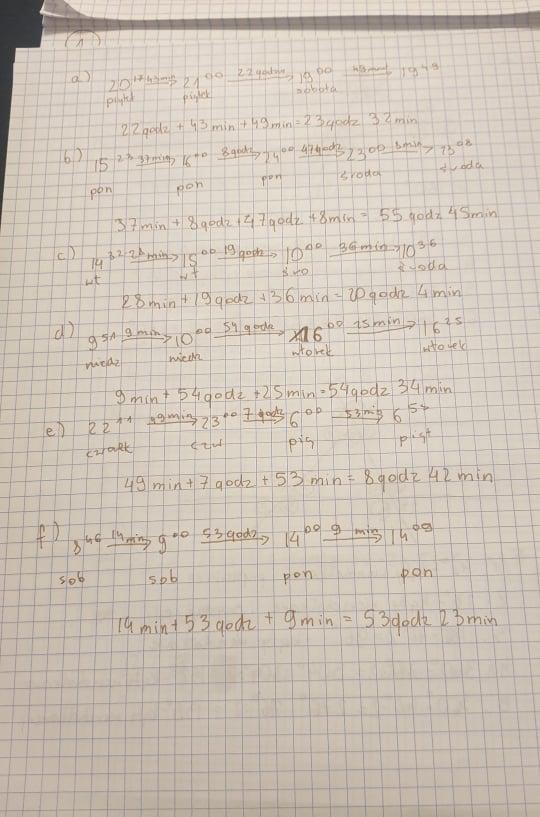 1
a) 20¹⁷ 43min→ 21⁰⁰ 22godzin→ 19⁰⁰ 49min→ 19⁴⁹
piątek piątek sobota
22godz + 43min + 49min = 23godz 32min
b) 15²³ 37min→ 16⁰⁰ 8godz→ 24⁰⁰ 47godz→ 23⁰⁰ 8min→ 23⁰⁸
pon pon pon środa środa
37min + 8godz + 47godz + 8min = 55godz 45min
c) 14³² 28min→ 15⁰⁰ 19godz→ 10⁰⁰ 36min→ 10³⁶
wt wt śro środa
28min + 19godz + 36min = 20godz 4min
d) 9⁵¹ 9min→ 10⁰⁰ 54godz→ 16⁰⁰ 25min→ 16²⁵
niedz niedz wtorek wtorek
9min + 54godz + 25min = 54godz 34min
e) 22¹¹ 49min→ 23⁰⁰ 7godz→ 6⁰⁰ 53min→ 6⁵³
czwart czw pią piąt
49min + 7godz + 53min = 8godz 42min
f) 8⁴⁶ 14min→ 9⁰⁰ 53godz→ 14⁰⁰ 9min→ 14⁰⁹
sob sob pon pon
14min + 53godz + 9min = 53godz 23min